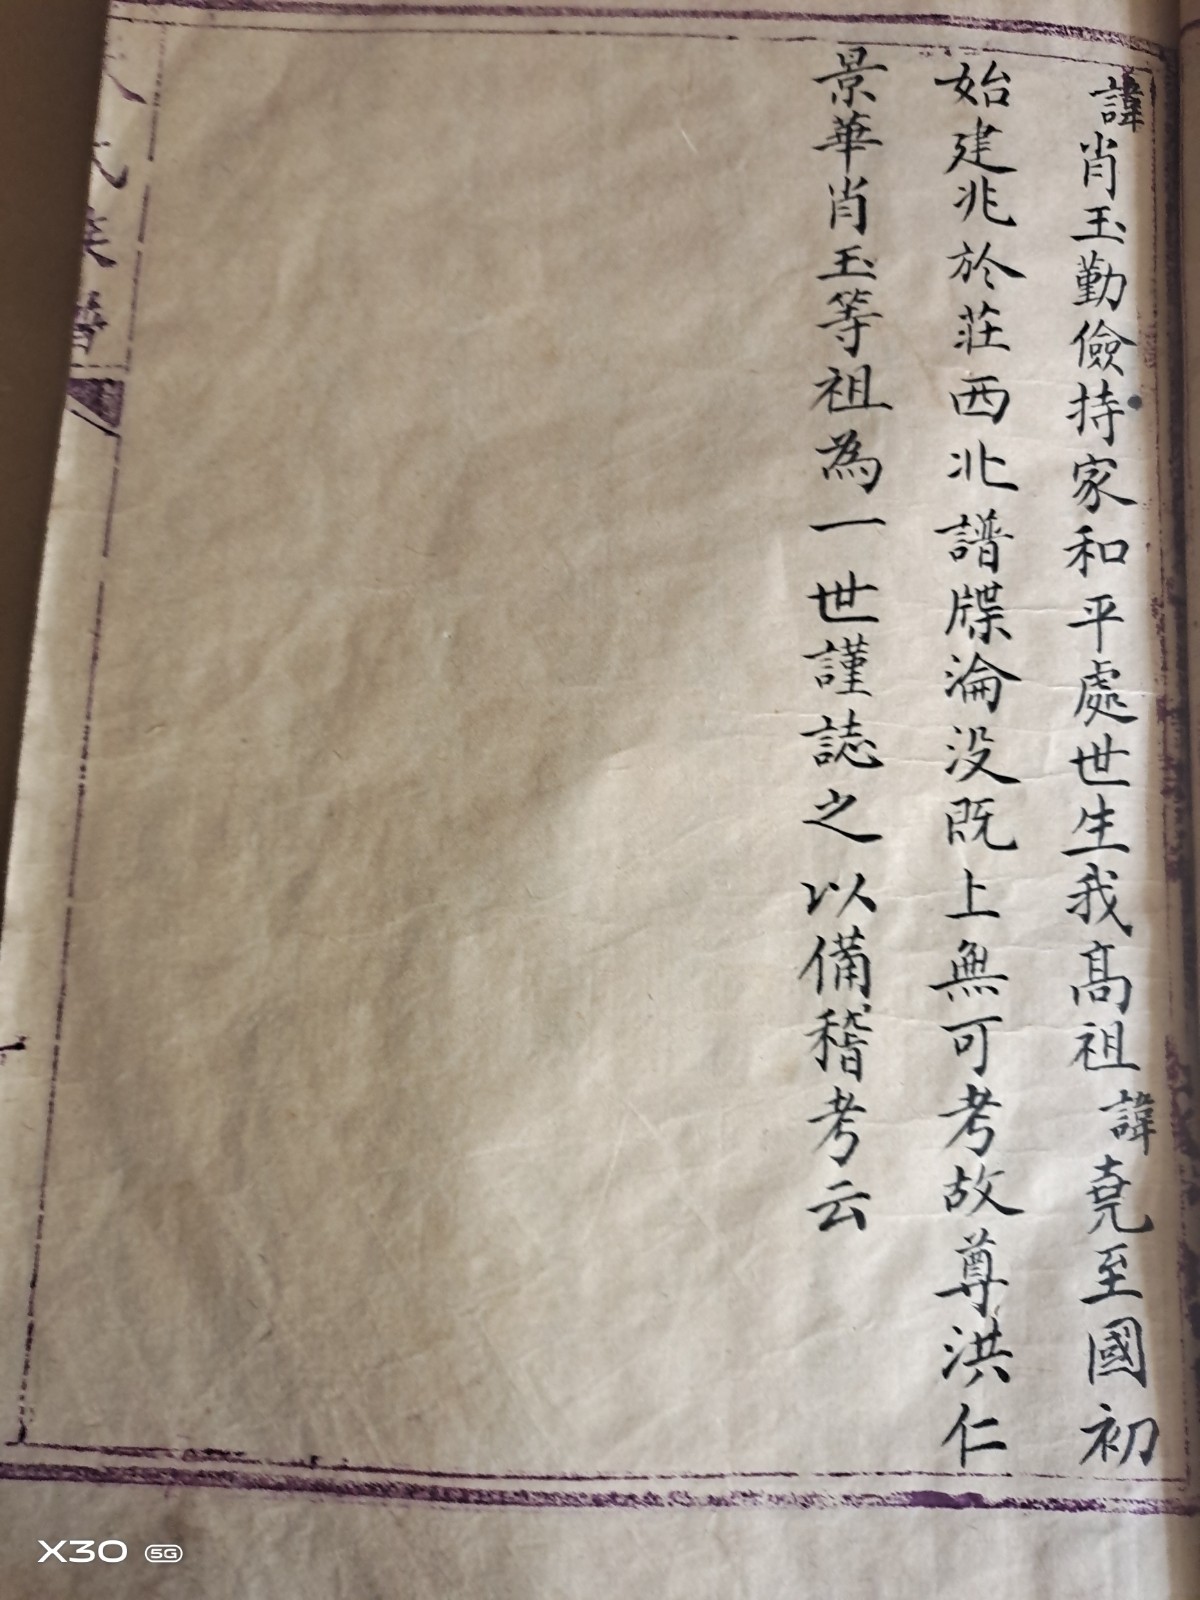 諱肖玉勤儉持家和平處世生我髙祖諱堯至國初
始建兆於莊西北譜牒淪没既上無可考故尊洪仁
景華肖玉等祖為一世謹誌之以備稽考云
氏族譜
X30 5G